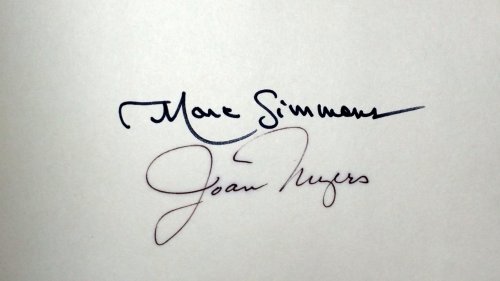 Marc Simmons
Joan Myers